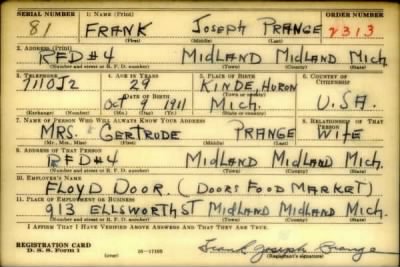 SERIAL NUMBER 1. NAME (Print) ORDER NUMBER
81 FRANK JOSEPH PRANGE 2313
(First) (Middle) (Last)
2. ADDRESS (Print)
RFD#4 MIDLAND MIDLAND MICH.
(Number and street or R. F. D. number) (Town) (County) (State)
3. TELEPHONE 4. AGE IN YEARS 5. PLACE OF BIRTH 6. COUNTRY OF CITIZENSHIP
7110J2 29 KINDE HURON
DATE OF BIRTH (Town) (County)
OCT 9 1911 MICH. U.S.A.
(Exchange) (Number) (Mo.) (Day) (Yr.) (State)
7. NAME OF PERSON WHO WILL ALWAYS KNOW YOUR ADDRESS 8. RELATIONSHIP OF THAT PERSON
MRS. GERTRUDE PRANGE WIFE
(Mr., Mrs., Miss) (First) (Middle) (Last)
9. ADDRESS OF THAT PERSON
RFD#4 MIDLAND MIDLAND MICH.
(Number and street or R. F. D. number) (Town) (County) (State)
10. EMPLOYER'S NAME
FLOYD DOOR. (DOORS FOOD MARKET)
11. PLACE OF EMPLOYMENT OR BUSINESS
913 ELLSWORTH ST MIDLAND MIDLAND MICH.
(Number and street or R. F. D. number) (Town) (County) (State)
I AFFIRM THAT I HAVE VERIFIED ABOVE ANSWERS AND THAT THEY ARE TRUE.
REGISTRATION CARD
D. S. S. Form 1 (over) Frank Joseph Prange
(Registrant's signature)